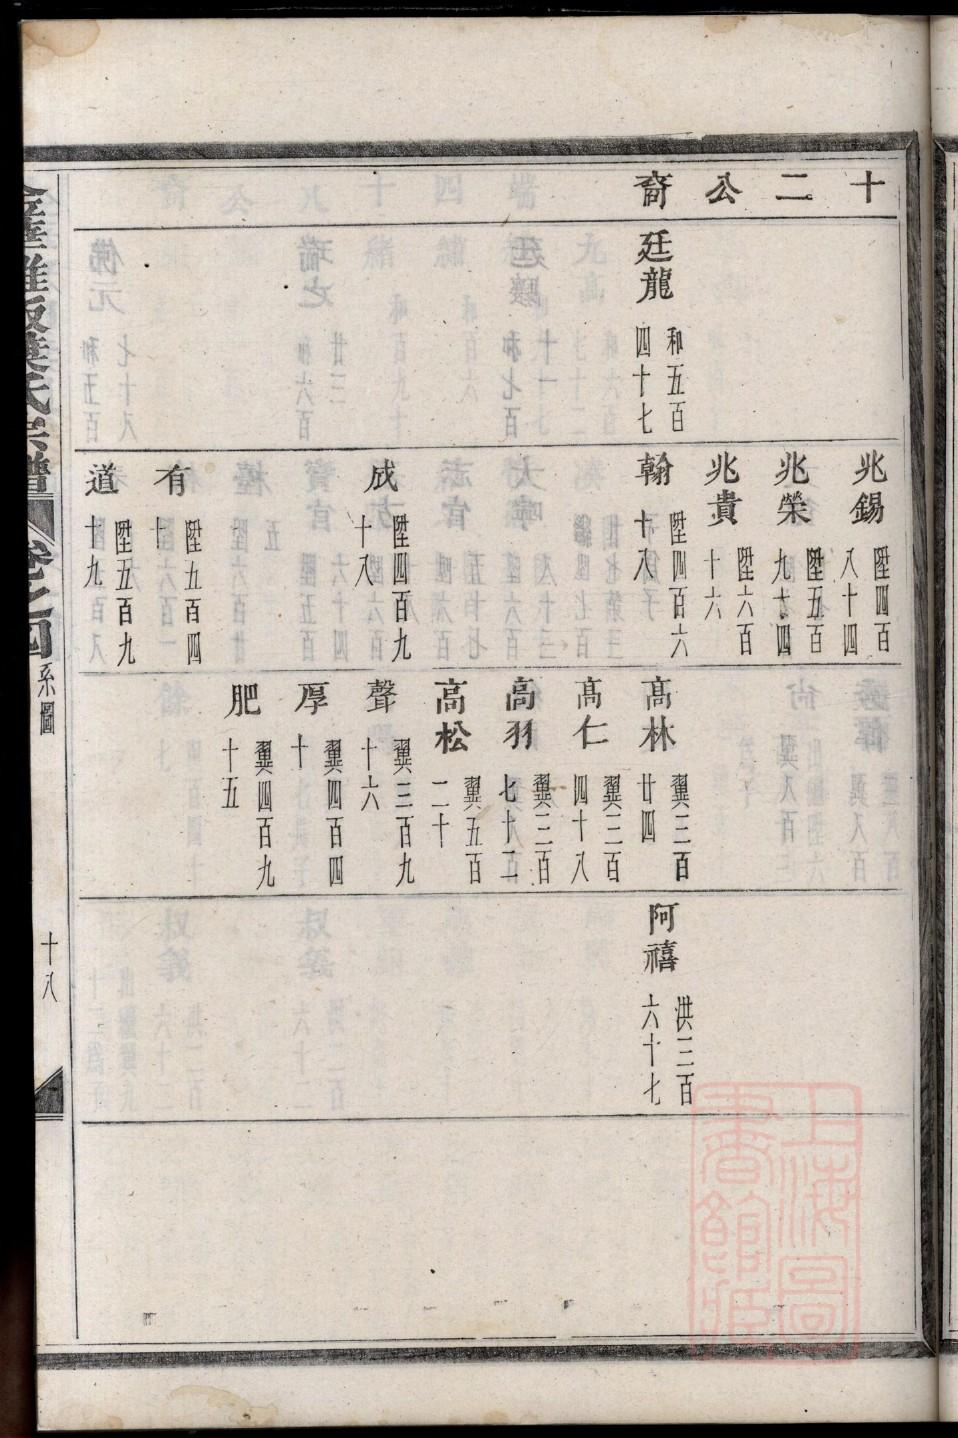 十二公裔
廷龍 和五百四十七
兆錫 陞四百八十四
兆榮 陞五百九十四
兆貴 陞六百十六
翰 陞四百六十八
成 陞四百九十八
有 陞五百四十
道 陞五百九十九
高林 翼三百廿四
高仁 翼三百四十八
高羽 翼三百七十二
高松 翼五百二十
聲 翼三百九十六
厚 翼四百四十
肥 翼四百九十五
阿禧 洪三百六十七
氏宗譜
卷之四
系圖
十八
上海圖書館藏